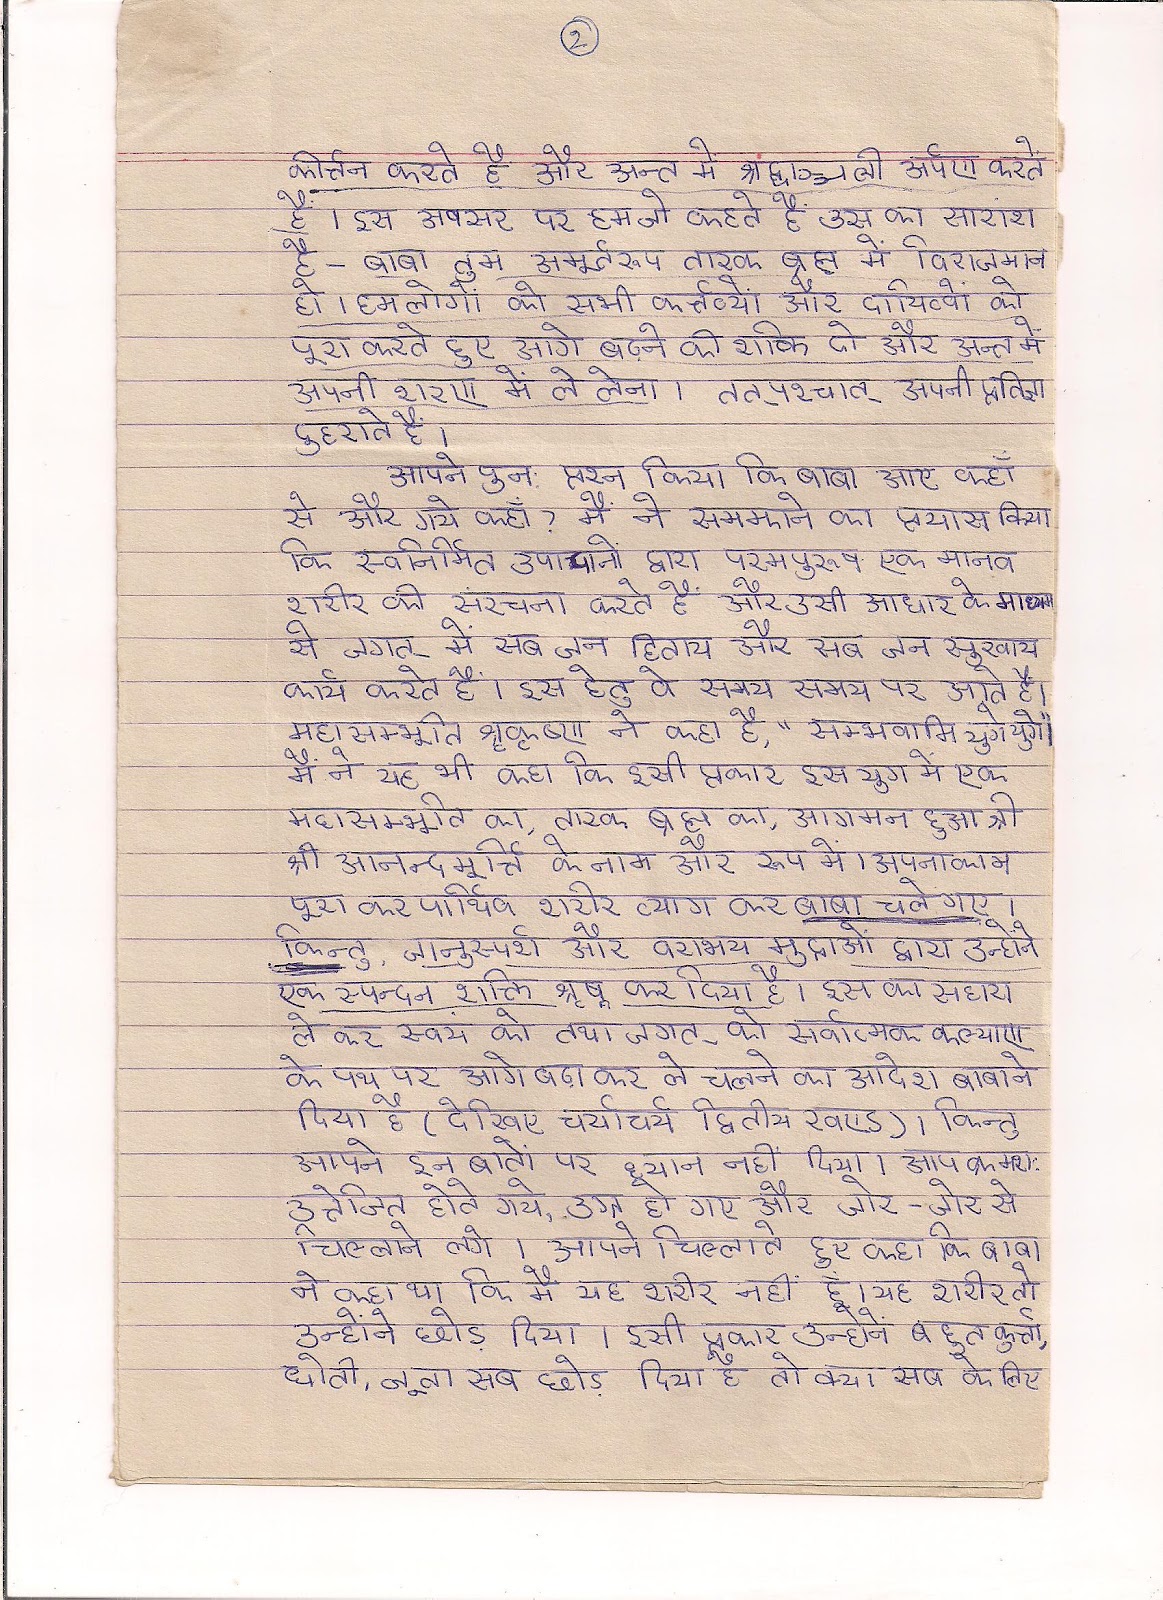 2
कीर्त्तन करते हैं और अन्त में श्रद्धाञ्जली अर्पण करते
हैं । इस अवसर पर हम जो कहते हैं उस का सारांश
है - बाबा तुम अमूर्तरूप तारक ब्रह्म में विराजमान
हो । हमलोगों को सभी कर्त्तव्यों और दायित्वों को
पूरा करते हुए आगे बढ़ने की शक्ति दो और अन्त में
अपनी शरण में ले लेना । तत् पश्चात् अपनी प्रतिज्ञा
दुहराते हैं ।
आपने पुनः प्रश्न किया कि बाबा आए कहाँ
से और गये कहाँ ? मैं ने समझाने का प्रयास किया
कि स्वनिर्मित उपादानों द्वारा परमपुरूष एक मानव
शरीर की संरचना करते हैं और उसी आधार के माध्यम
से जगत् में सब जन हिताय और सब जन सुखाय
कार्य करते हैं । इस हेतु वे समय समय पर आते हैं।
महासम्भूति श्रृकृष्ण ने कहा है, " सम्भवामि युगे युगे"।
मैं ने यह भी कहा कि इसी प्रकार इस युग में एक
महासम्भूति का, तारक ब्रह्म का, आगमन हुआ श्री
श्री आनन्दमूर्त्ति के नाम और रूप में । अपना काम
पूरा कर पार्थिव शरीर त्याग कर बाबा चले गए ।
किन्तु, जानुस्पर्श और वराभय मुद्राओं द्वारा उन्होंने
एक स्पन्दन शक्ति कर दिया है । इस का सहारा
ले कर स्वयं को तथा जगत् को सर्वात्मक कल्याण
के पथ पर आगे बढ़ा कर ले चलने का आदेश बाबा ने
दिया है ( देखिए चर्याचर्य द्वितीय खण्ड ) । किन्तु
आपने इन बातों पर ध्यान नहीं दिया । आप क्रमशः
उत्तेजित होते गये, उग्र हो गए और जोर - जोर से
चिल्लाने लगे । आपने चिल्लाते हुए कहा कि बाबा
ने कहा था कि मैं यह शरीर नहीं हूँ । यह शरीर तो
उन्होंने छोड़ दिया । इसी प्रकार उन्होंनें बहुत कुर्त्ता,
धोती, जूता सब छोड़ दिया है तो क्या सब के लिए